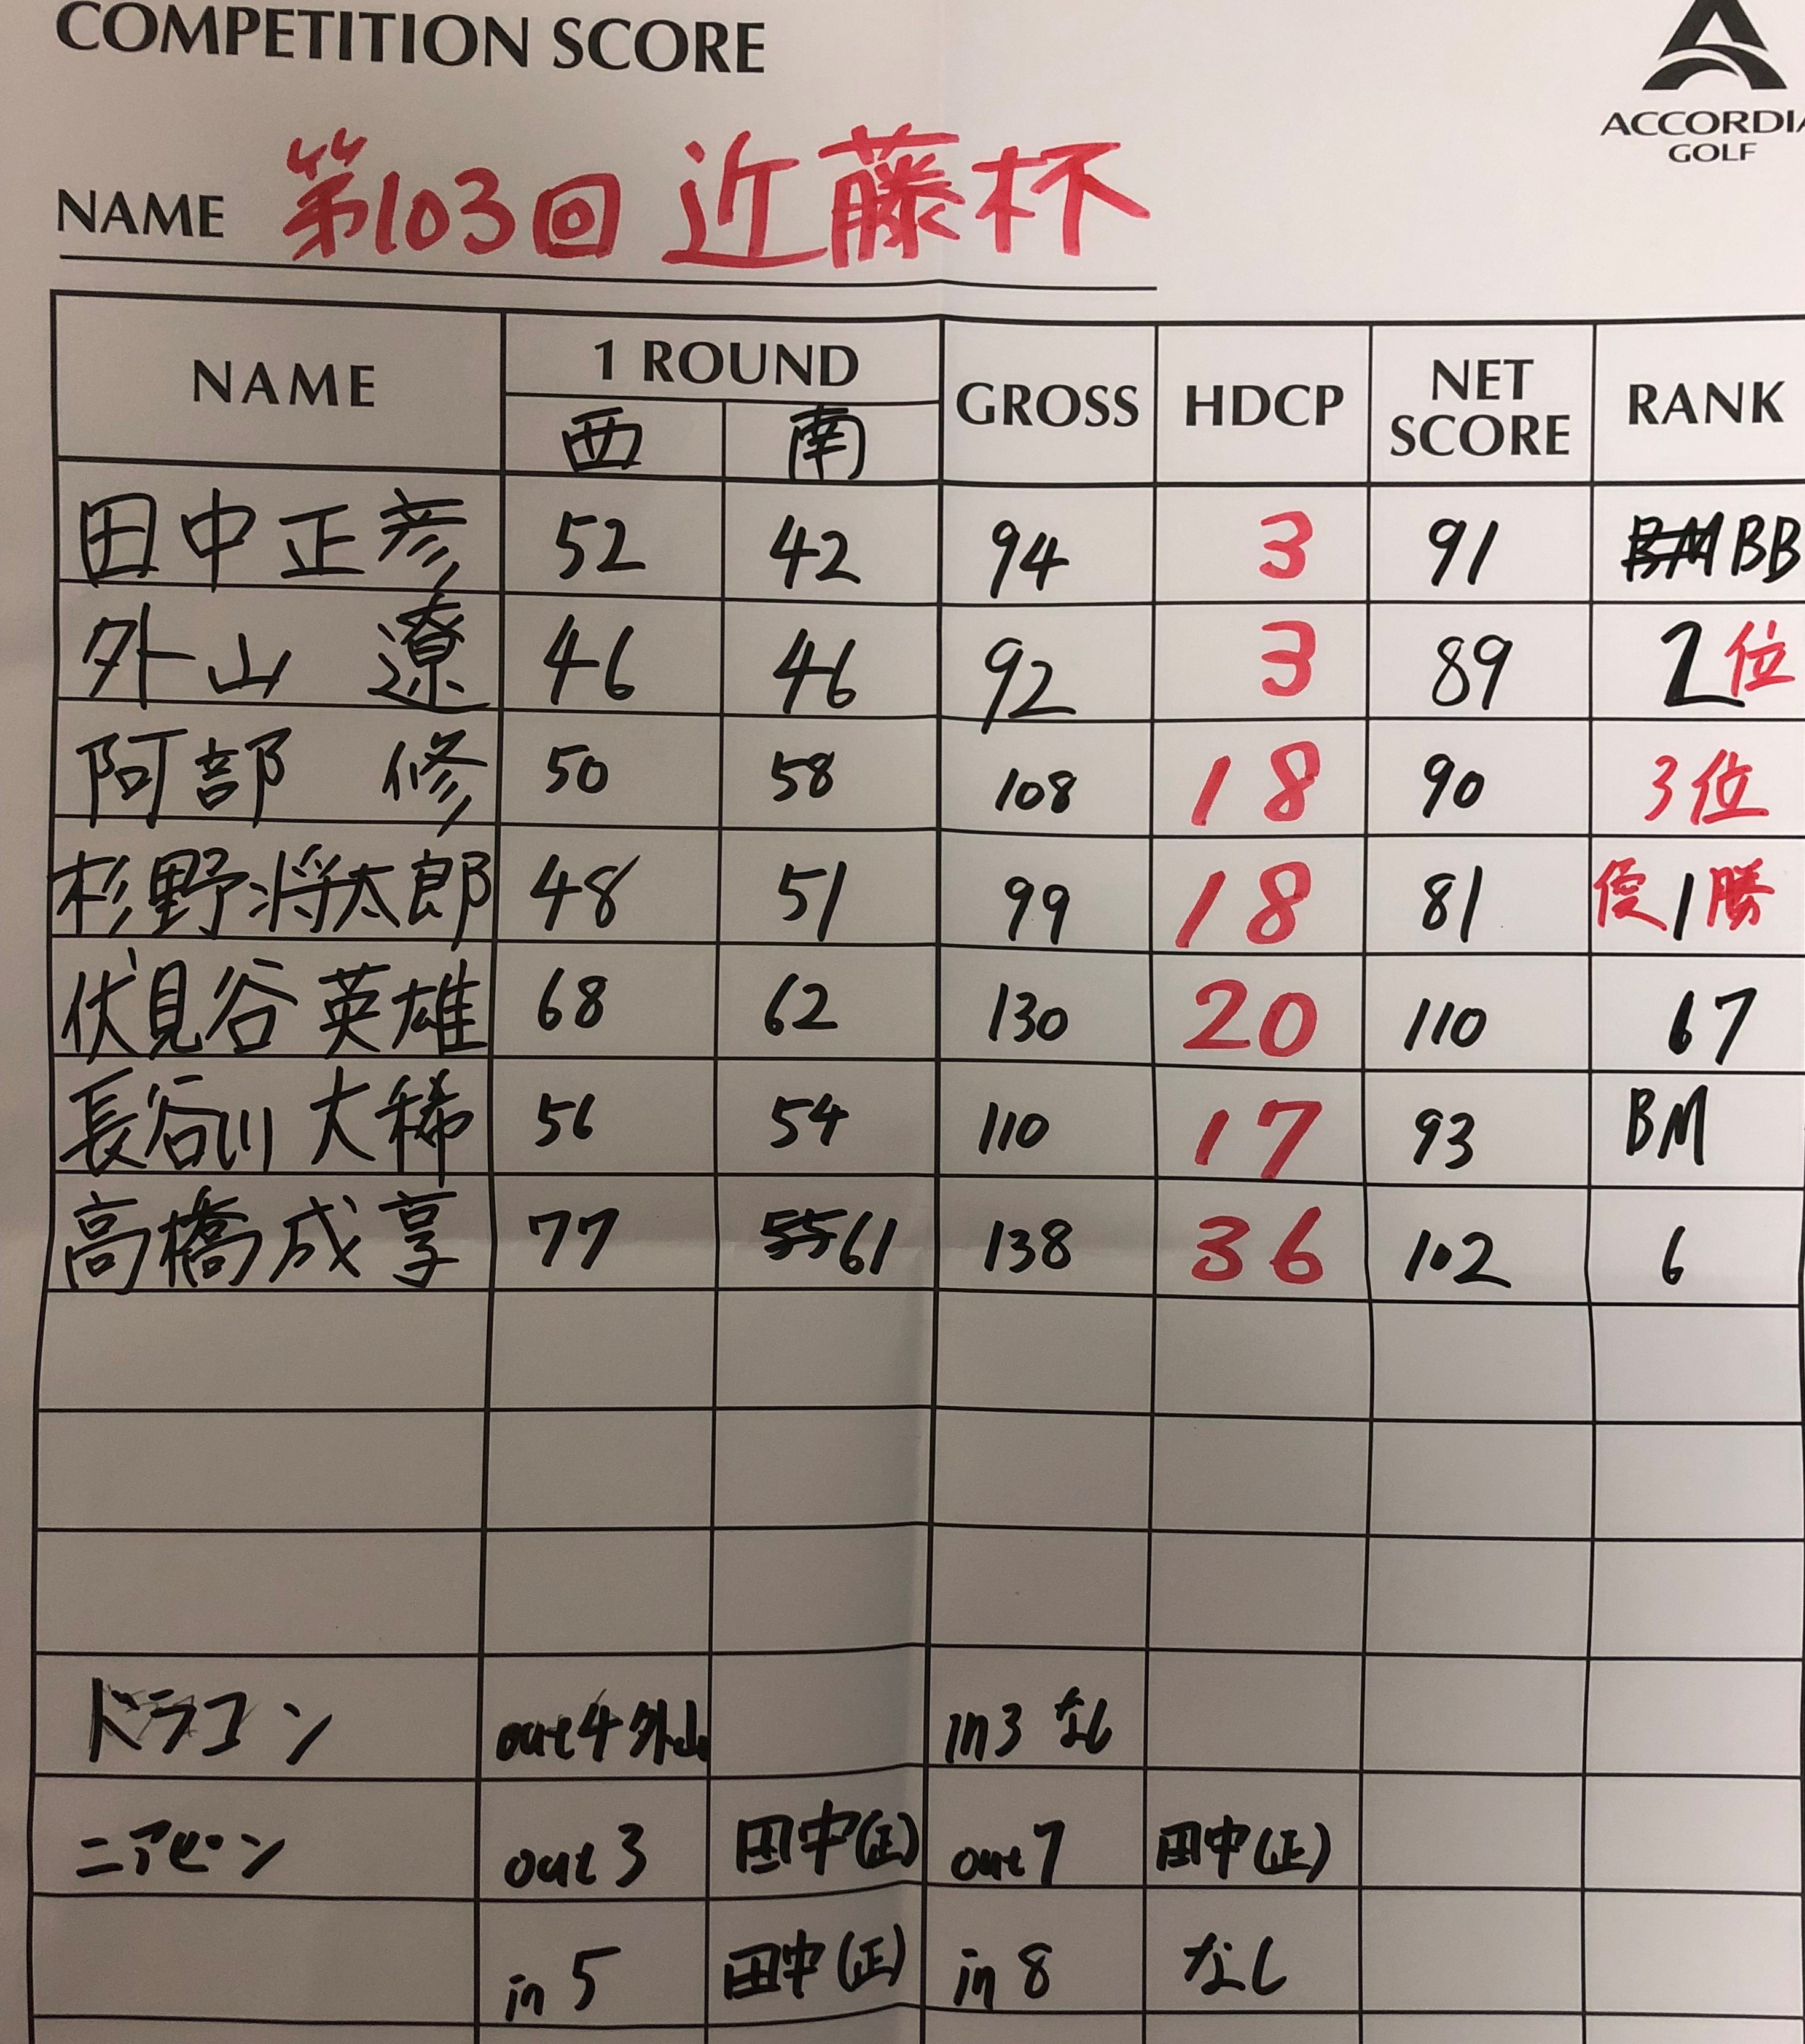 COMPETITION SCORE
ACCORDIA
GOLF
NAME 第103回 近藤杯
NAME 1 ROUND GROSS HDCP NET SCORE RANK
西 南
田中正彦 52 42 94 3 91 BM BB
外山 遼 46 46 92 3 89 2位
阿部 修 50 58 108 18 90 3位
杉野将太郎 48 51 99 18 81 優1勝
伏見谷英雄 68 62 130 20 110 67
長谷川大稀 56 54 110 17 93 BM
高橋成享 77 55 61 138 36 102 6
ドラコン out4 外山 in3 なし
ニアピン out 3 田中(正) out 7 田中(正)
in 5 田中(正) in 8 なし